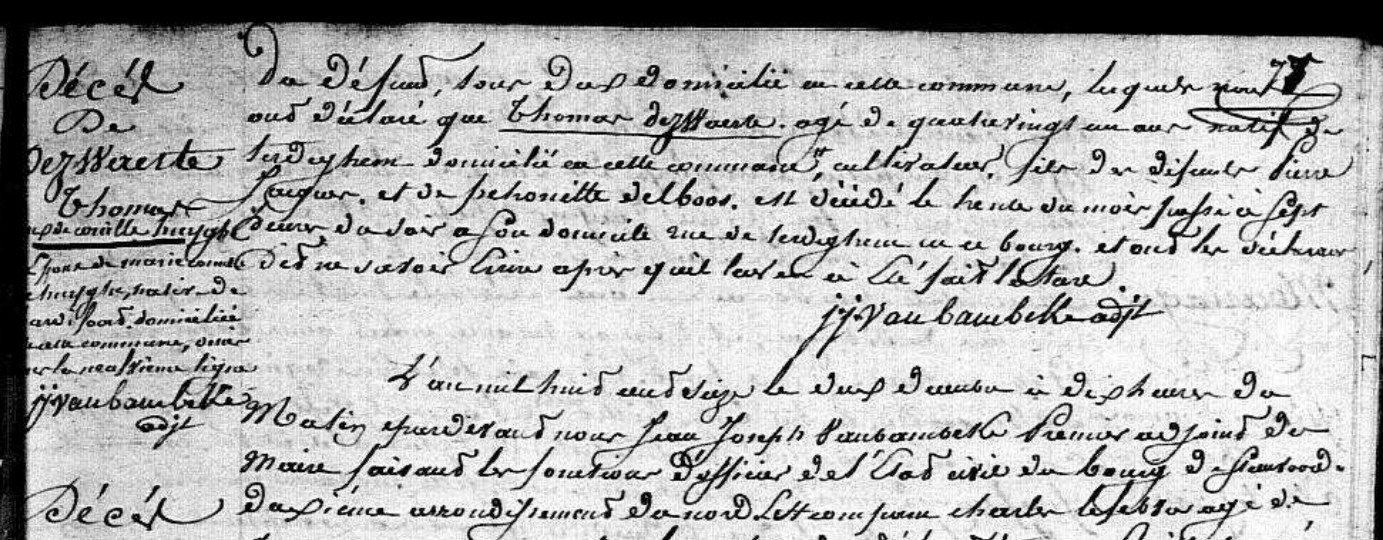 75
Décés
De
Dezwaerte
Thomas
huyghe
Epoux de marie
huyghe, native de
domiciliée
commune,
la neufvieme ligne
jjvanbambeke
adjt
Décés
Du défunt, tous deux domicilié en cette commune, lesquels nous
ont déclaré que Thomas dezwaerte. agé de quatrevingt un ans natif de
terdeghem domicilié en cette commune, cultivateur, fils des défunts Pierre
Jacques. et de petronille delboos. est décédé le trente du mois passé à sept
heures du soir a son domicile rue de terdeghem en ce bourg. et ont les déclarans
dit ne savoir Ecrire après qu'il leur en à Eté fait lecture.
jjvanbambeke adjt
L'an mil huit cent seize le deux à dix heures du
Matin pardevant nous Jean Joseph Vanbambeke Premier adjoint du
Maire faisant les fonctions d'officier de l'Etat civil du bourg de Steenvord.
deuxième arrondissement du nord Est comparu charles lefebvre agé de